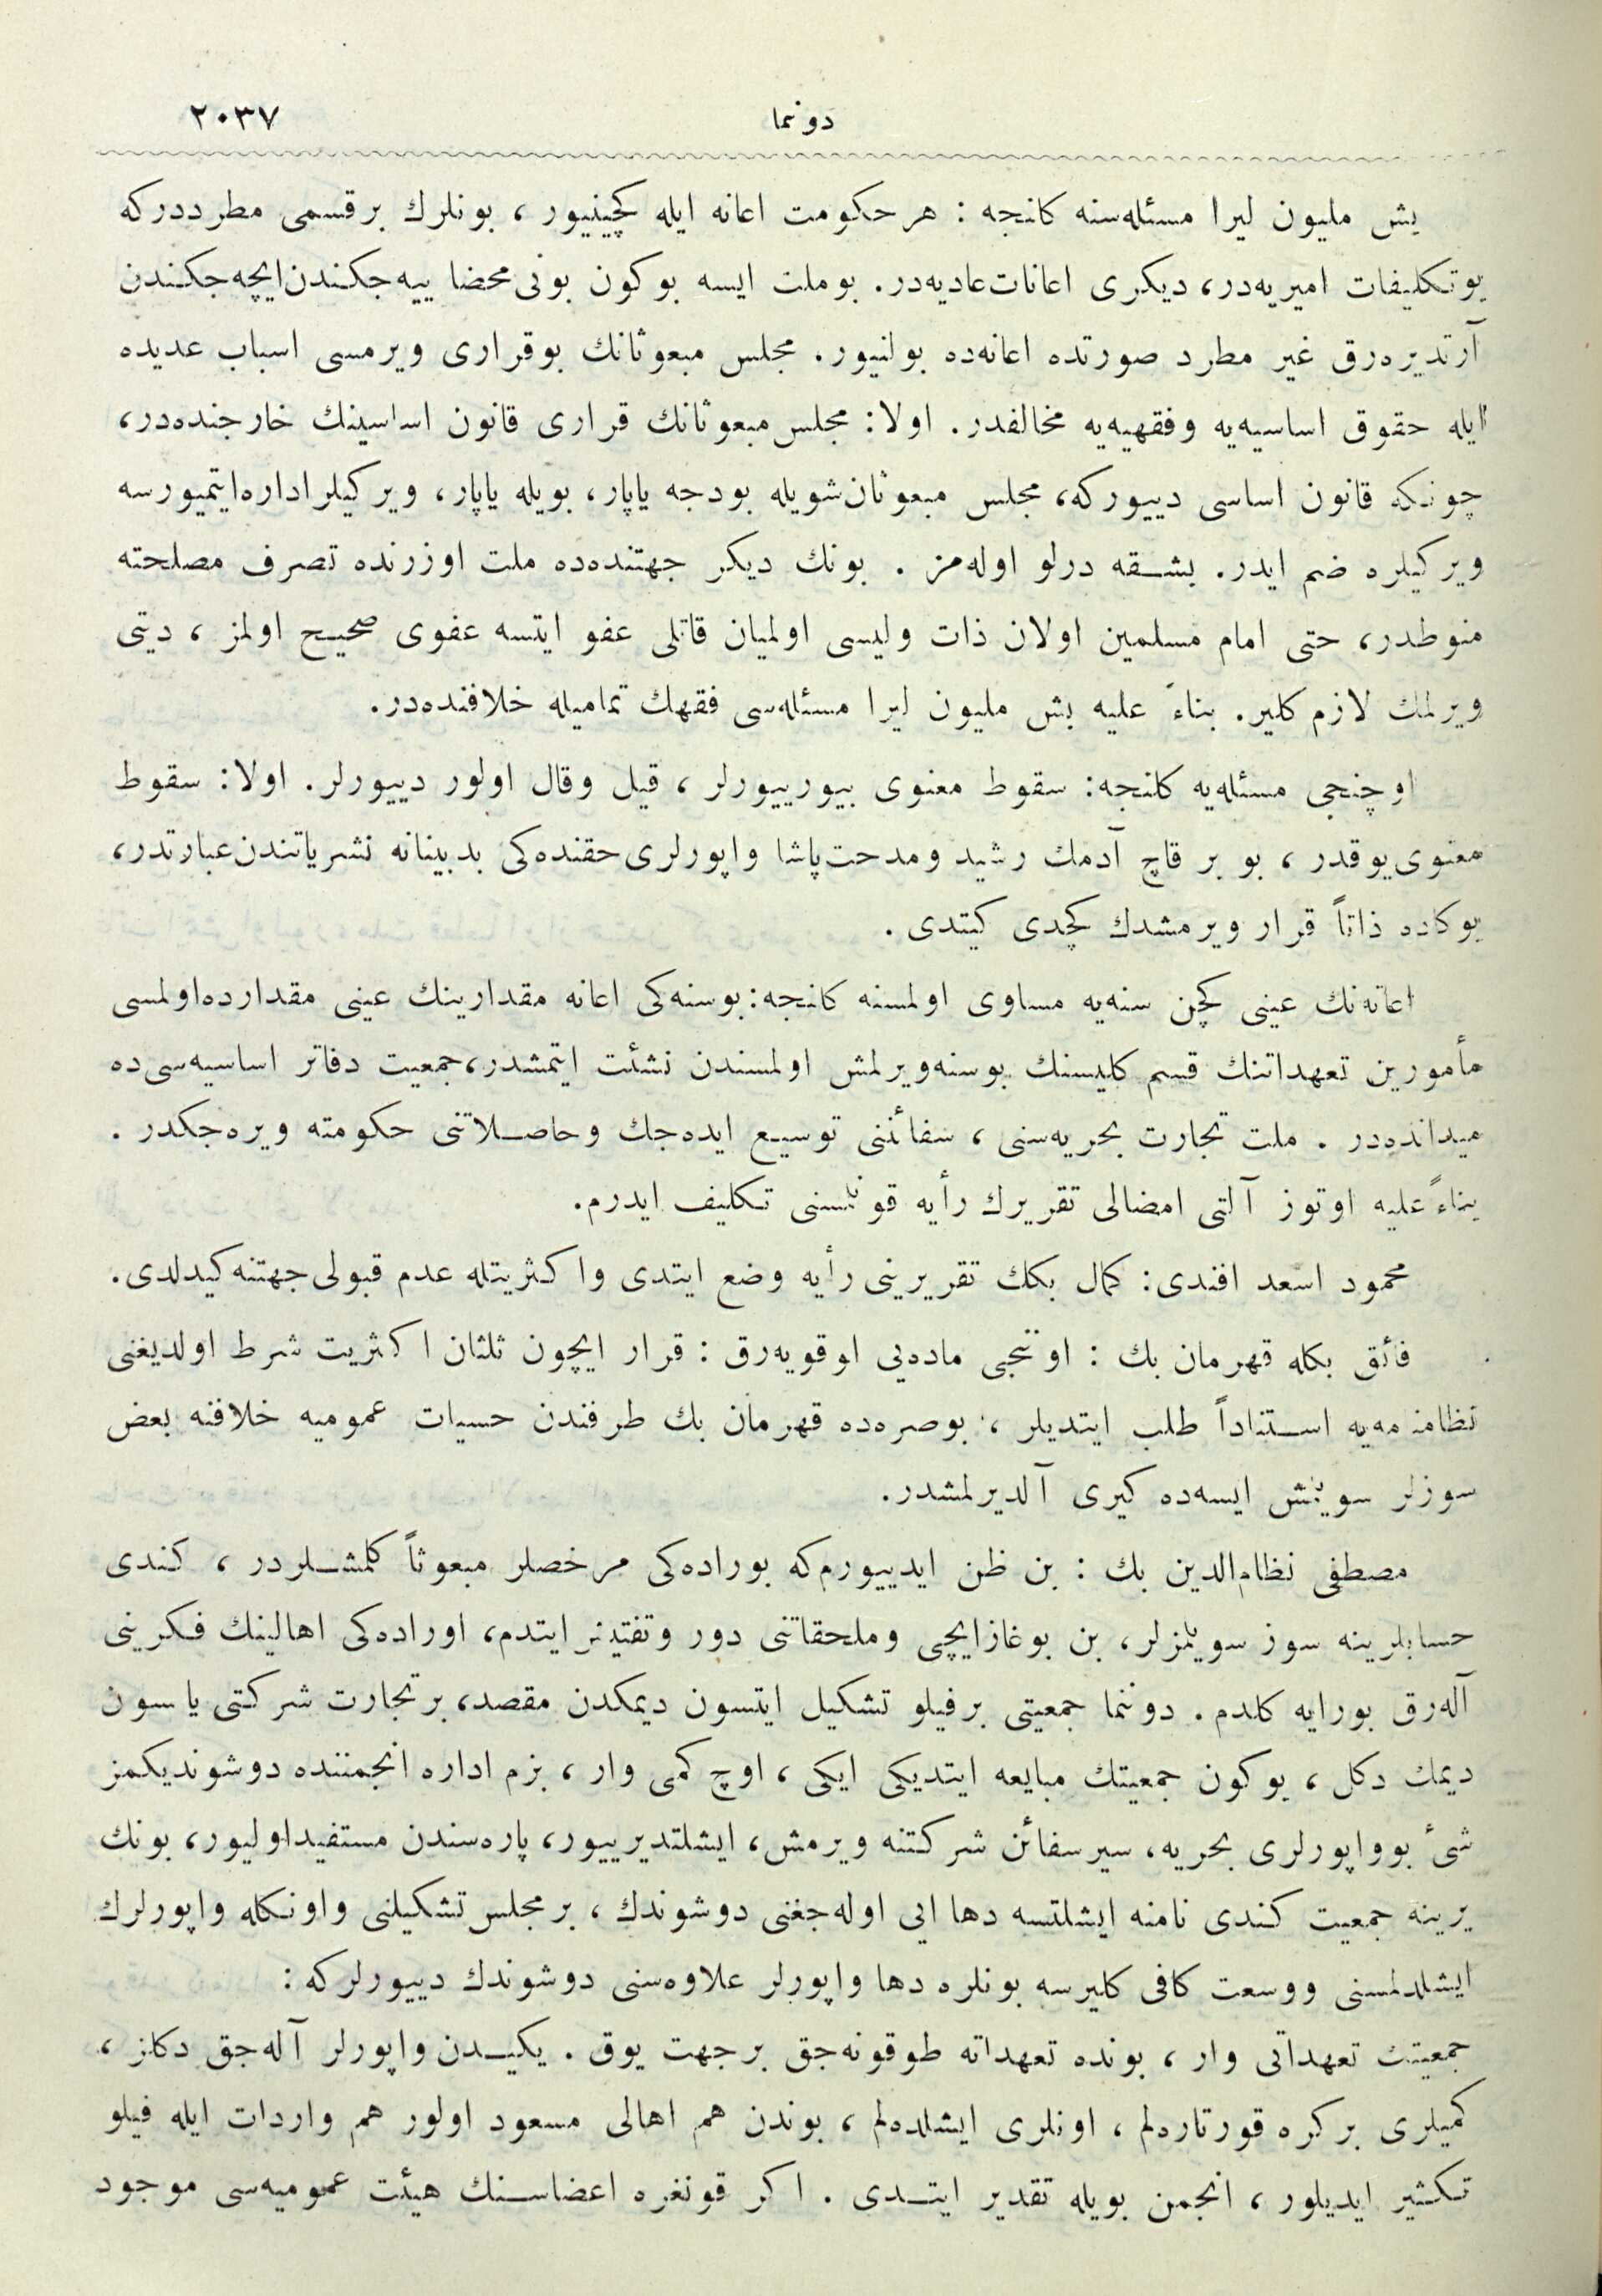 دونما ٢٠٣٧
بش مليون ليرا مسئله‌سنه كلنجه : هر حكومت اعانه ايله كچينيور ، بونلرك بر قسمى مطرددركه
بوتكليفات اميريه‌در، ديكرى اعانات عاديه‌در. بوملت ايسه بوكون بونى محضا ييه‌جكندن ايچه‌جكندن
آرتديره‌رق غير مطرد صورتده اعانه‌ده بولنيور. مجلس مبعوثانك بوقرارى ويرمسى اسباب عديده
ايله حقوق اساسيه‌يه وفقهيه‌يه مخالفدر. اولا: مجلس مبعوثانك قرارى قانون اساسينك خارجنده‌در،
چونكه قانون اساسى دييوركه، مجلس مبعوثان شويله بودجه ياپار، بويله ياپار، ويركيلر اداره ايتميورسه
ويركيلره ضم ايدر. بشقه درلو اوله‌مز . بونك ديكر جهتنده‌ده ملت اوزرنده تصرف مصلحته
منوطدر، حتى امام مسلمين اولان ذات وليسى اولميان قاتلى عفو ايتسه عفوى صحيح اولمز ، ديتى
ويرلمك لازم كلير. بناءً عليه بش مليون ليرا مسئله‌سى فقهك تماميله خلافنده‌در.
اوچنجى مسئله‌يه كلنجه: سقوط معنوى بيورييورلر ، قيل وقال اولور دييورلر. اولا: سقوط
معنوى يوقدر ، بو بر قاچ آدمك رشيد ومدحت پاشا واپورلرى حقنده‌كى بدبينانه نشرياتندن عبارتدر،
بوكاده ذاتاً قرار ويرمشدك كچدى كيتدى .
اعانه‌نك عينى كچن سنه‌يه مساوى اولمسنه كلنجه: بوسنه‌كى اعانه مقدارينك عينى مقدارده اولمسى
مأمورين تعهداتنك قسم كليسنك بوسنه ويرلمش اولمسندن نشئت ايتمشدر، جمعيت دفاتر اساسيه‌سى‌ده
ميدانده‌در . ملت تجارت بحريه‌سنى ، سفائننى توسيع ايده‌جك وحاصلاتنى حكومته ويره‌جكدر .
بناءً عليه اوتوز آلتى امضالى تقريرك رأيه قونلمسنى تكليف ايدرم.
محمود اسعد افندى: كمال بكك تقريرينى رأيه وضع ايتدى واكثريتله عدم قبولى جهتنه كيدلدى.
فائق بكله قهرمان بك : اوننجى ماده‌يى اوقويه‌رق : قرار ايچون ثلثان اكثريت شرط اولديغنى
نظامنامه‌يه استناداً طلب ايتديلر ، بوصره‌ده قهرمان بك طرفندن حسيات عموميه خلافنه بعض
سوزلر سويلنمش ايسه‌ده كيرى آلديرلمشدر.
مصطفى نظام الدين بك : بن ظن ايدييورم‌كه بوراده‌كى مرخصلر مبعوثاً كلمشلردر ، كندى
حسابلرينه سوز سويلمزلر، بن بوغازايچى وملحقاتنى دور وتفتيش ايتدم، اوراده‌كى اهالينك فكرينى
آله‌رق بورايه كلدم . دوننما جمعيتى برفيلو تشكيل ايتسون ديمكدن مقصد، برتجارت شركتى ياسون
ديمك دكل ، بوكون جمعيتك مبايعه ايتديكى ايكى ، اوچ كمى وار ، بزم اداره انجمننده دوشونديكمز
شئ بوواپورلرى بحريه، سيرسفائن شركتنه ويرمش، ايشلتديرييور، پاره‌سندن مستفيداوليور، بونك
يرينه جمعيت كندى نامنه ايشلتسه دها ايى اوله‌جغنى دوشوندك ، برمجلس تشكيلنى واونكله واپورلرك
ايشلدلمسنى ووسعت كافى كليرسه بونلره دها واپورلر علاوه‌سنى دوشوندك دييورلركه :
جمعيتك تعهداتى وار ، بونده تعهداته طوقونه‌جق برجهت يوق . يكيدن واپورلر آله‌جق دكلز ،
كميلرى بركره قورتاره‌لم ، اونلرى ايشلده‌لم ، بوندن هم اهالى مسعود اولور هم واردات ايله فيلو
تكثير ايديلور ، انجمن بويله تقدير ايتدى . اكر قونغره اعضاسنك هيئت عموميه‌سى موجود